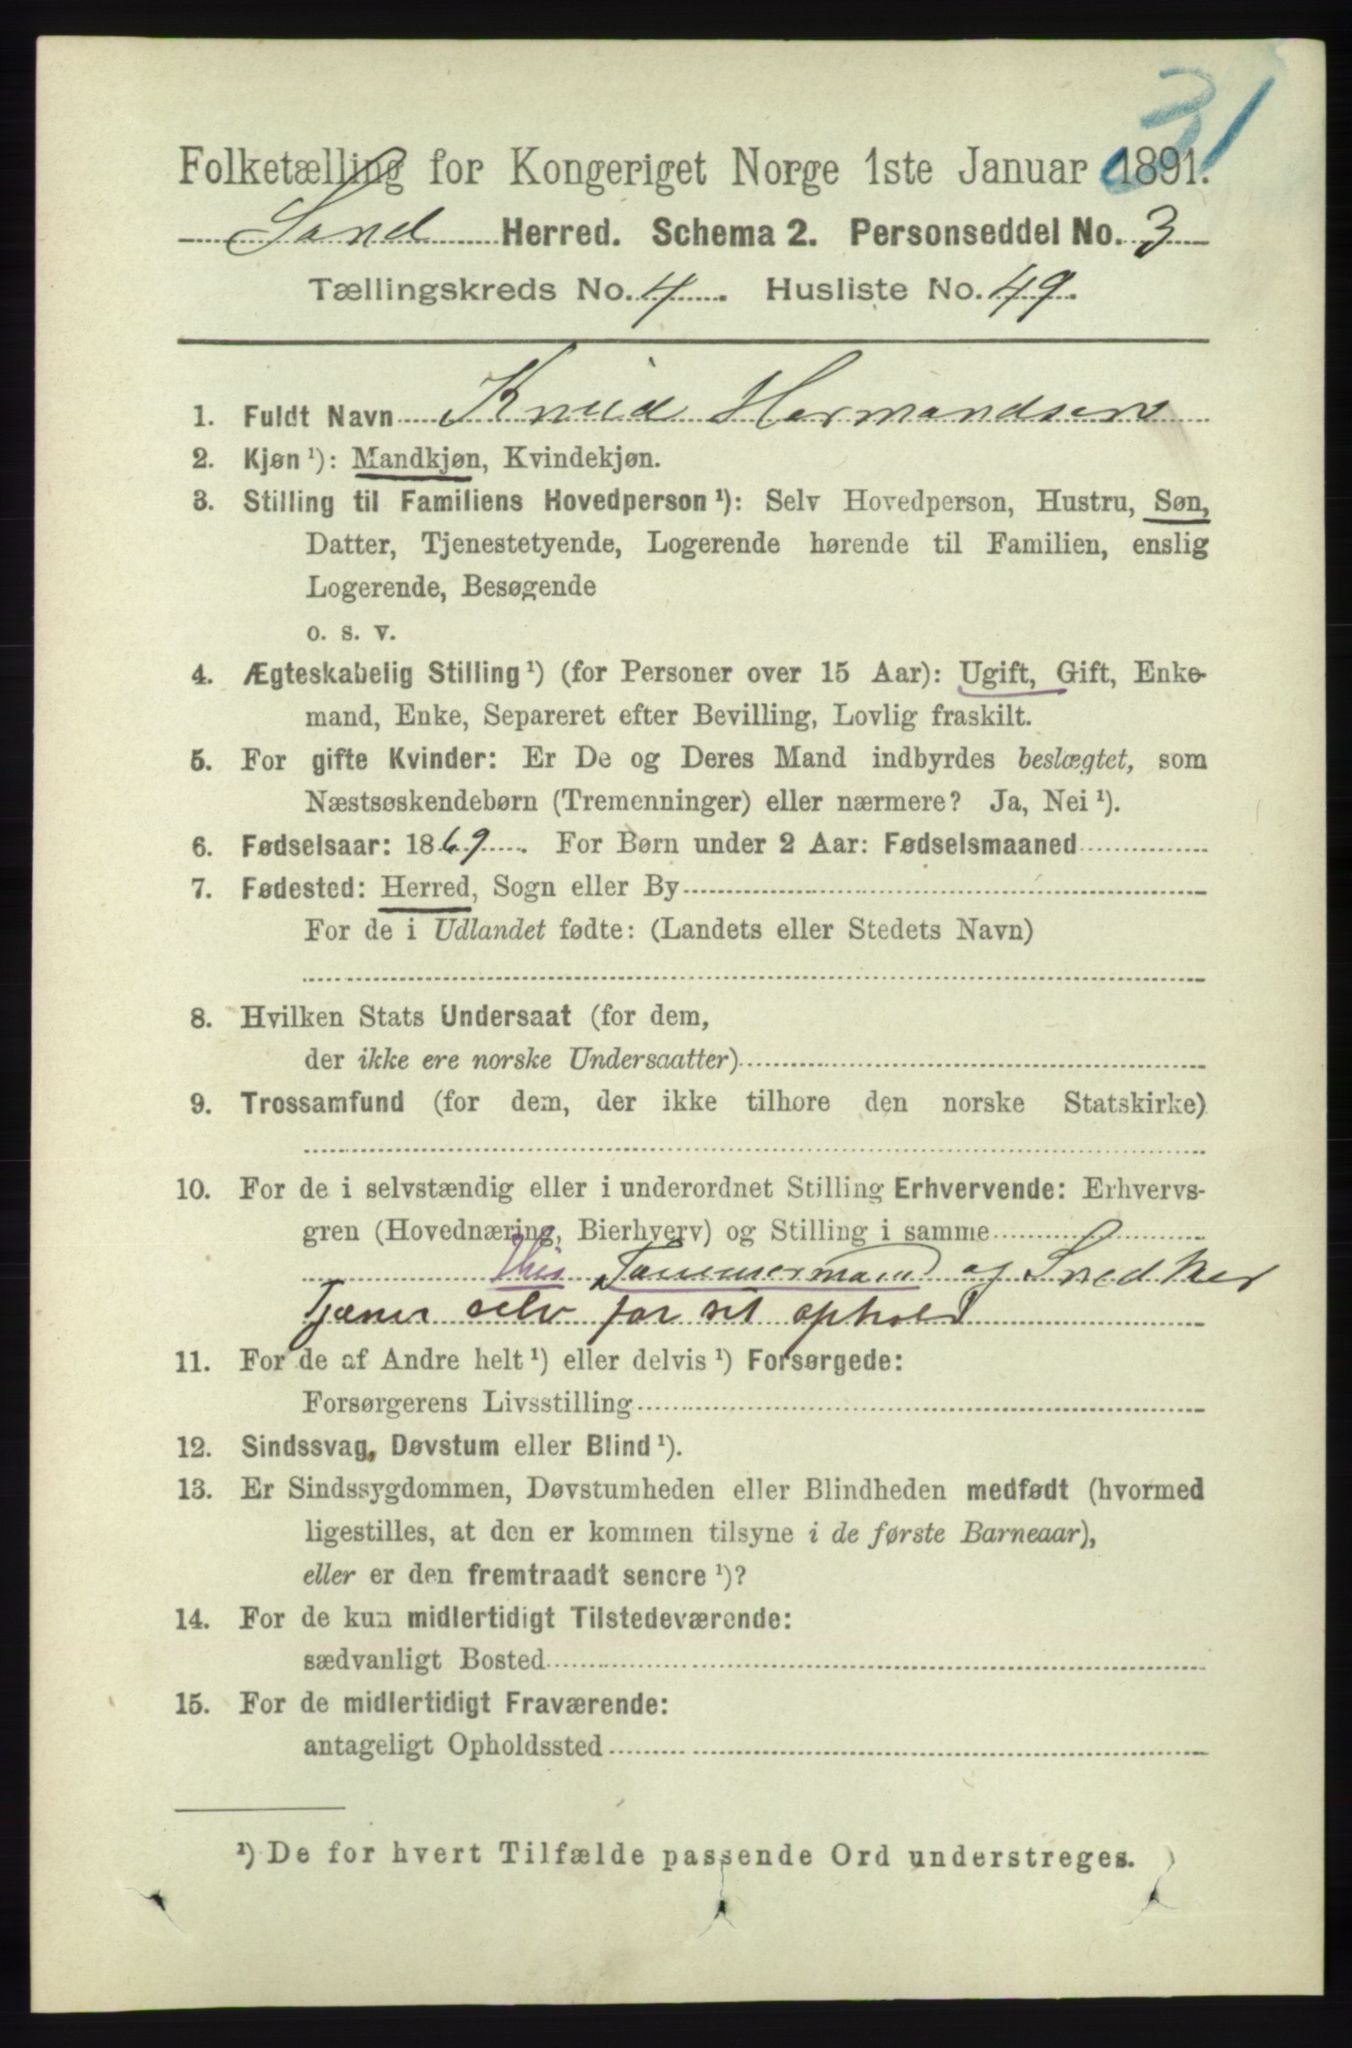 31
Folketælling for Kongeriget Norge 1ste Januar 1891.
Sand Herred. Schema 2. Personseddel No. 3
Tællingskreds No. 4. Husliste No. 49.
1. Fuldt Navn Knud Hermandsen
2. Kjøn ¹): Mandkjøn, Kvindekjøn.
3. Stilling til Familiens Hovedperson ¹): Selv Hovedperson, Hustru, Søn,
Datter, Tjenestetyende, Logerende hørende til Familien, enslig
Logerende, Besøgende
o. s. v.
4. Ægteskabelig Stilling ¹) (for Personer over 15 Aar): Ugift, Gift, Enke-
mand, Enke, Separeret efter Bevilling, Lovlig fraskilt.
5. For gifte Kvinder: Er De og Deres Mand indbyrdes beslægtet, som
Næstsøskendebørn (Tremenninger) eller nærmere? Ja, Nei ¹).
6. Fødselsaar: 1869. For Børn under 2 Aar: Fødselsmaaned
7. Fødested: Herred, Sogn eller By
For de i Udlandet fødte: (Landets eller Stedets Navn)
8. Hvilken Stats Undersaat (for dem,
der ikke ere norske Undersaatter)
9. Trossamfund (for dem, der ikke tilhøre den norske Statskirke)
10. For de i selvstændig eller i underordnet Stilling Erhvervende: Erhvervs-
gren (Hovednæring, Bierhverv) og Stilling i samme
Hus Tømmermand og Snedker
Tjener selv for sit ophold
11. For de af Andre helt ¹) eller delvis ¹) Forsørgede:
Forsørgerens Livsstilling
12. Sindssvag, Døvstum eller Blind ¹).
13. Er Sindssygdommen, Døvstumheden eller Blindheden medfødt (hvormed
ligestilles, at den er kommen tilsyne i de første Barneaar),
eller er den fremtraadt senere ¹)?
14. For de kun midlertidigt Tilstedeværende:
sædvanligt Bosted
15. For de midlertidigt Fraværende:
antageligt Opholdssted
¹) De for hvert Tilfælde passende Ord understreges.